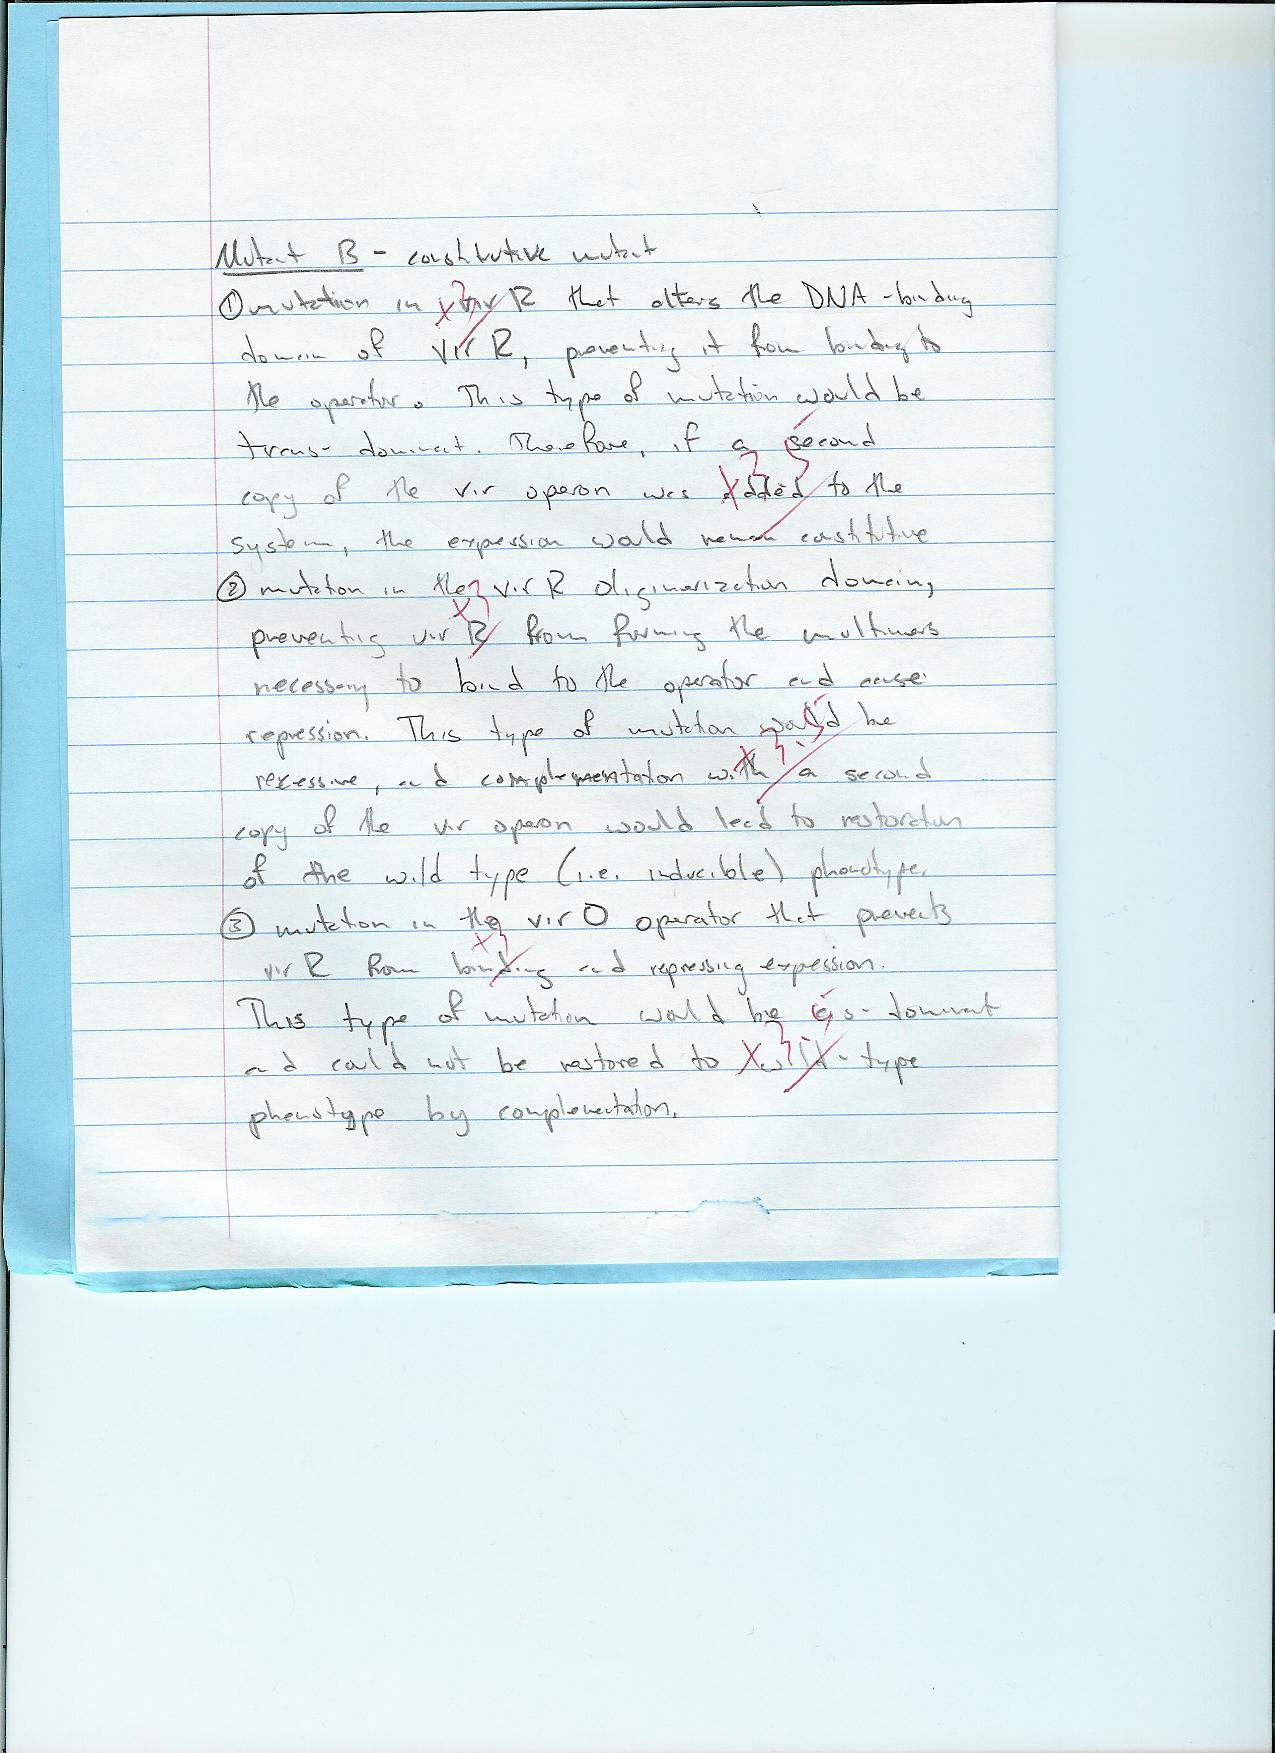 Mutant B - constitutive mutant
① mutation in vir R that alters the DNA-binding
domain of vir R, preventing it from binding to
the operator. This type of mutation would be
trans-dominant. Therefore, if a second
copy of the vir operon was added to the
system, the expression would remain constitutive
② mutation in the vir R oligimerization domain,
preventing vir R from forming the multimers
necessary to bind to the operator and cause
repression. This type of mutation would be
recessive, and complementation with a second
copy of the vir operon would lead to restoration
of the wild type (i.e. inducible) phenotype.
③ mutation in the vir O operator that prevents
vir R from binding and repressing expression.
This type of mutation would be cis-dominant
and could not be restored to wild-type
phenotype by complementation.